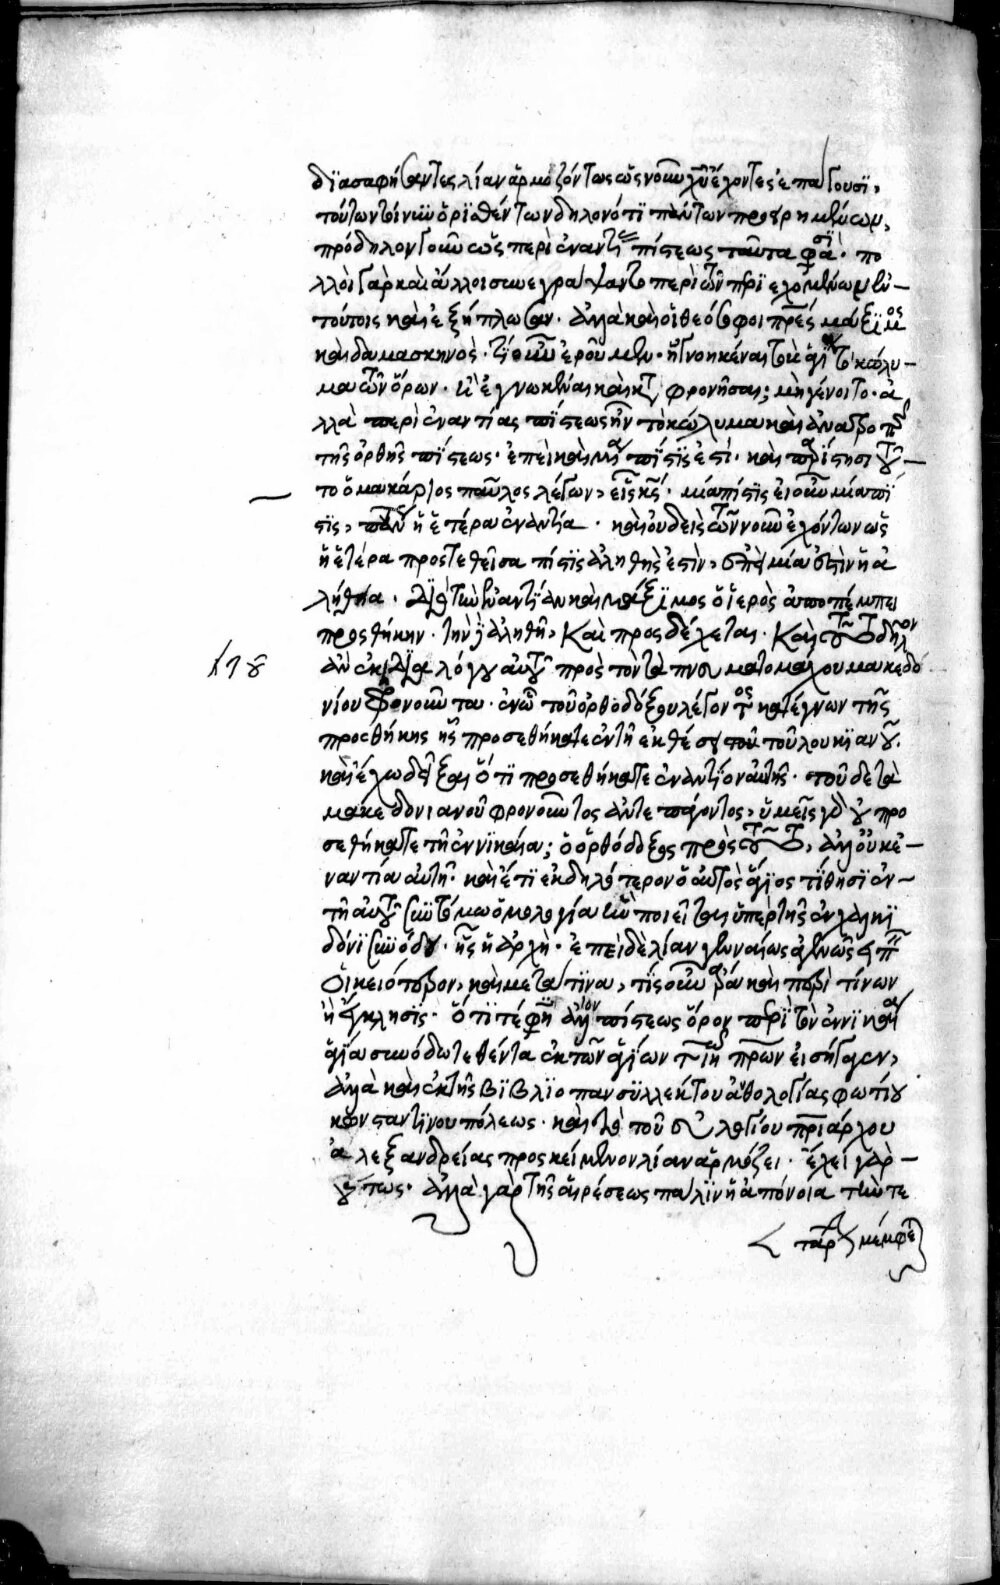 διασαφήσαντες λίαν ἁρμοζόντως ὡς νοῦν χῦ ἔχοντες ἐπάγουσι,
τούτων τοίνυν ὁρισθέντων δηλονότι πάντων προειρημένων,
πρόδηλον γοῦν ὡς περὶ ἐναντί πίστεως ταῦτα φασί. πο
λλοὶ γὰρ καὶ ἄλλοι συνεγράψαντο περὶ τῶν περιεχομένων ἐν
τούτοις καὶ ἐξήπλωσαν. ἀλλὰ καὶ οἱ θεόσοφοι πρές μάξιμος
καὶ δαμασκηνός. τί οὖν ἐροῦμεν. ἠγνοηκέναι τοὺς ἁγί τὸ κώλυ
μα τῶν ὅρων. ἢ ἐγνωκέναι καὶ κατ φρονῆσαι; μὴ γένοιτο. ἀ
λλὰ περὶ ἐναντίας πίστεως ἦν τὸ κώλυμα καὶ ἀνατροπ
τῆς ὀρθῆς πίστεως. ἐπεὶ καὶ μία πίστις ἐστί. καὶ παρίστησι τοῦ
το ὁ μακάριος παῦλος λέγων, εἷς κς. μία πίστις εἰ οὖν μία πί
στις, πάντως ἡ ἑτέρα ἐναντία. καὶ οὐδεὶς τῶν νοῦν ἐχόντων ὡς
ἡ ἑτέρα προστεθεῖσα πίστις ἀληθής ἐστιν, ἐπεὶ μία ἐστὶν ἡ ἀ
λήθεια. διὸ τὴν ἐναντίαν καὶ μάξιμος ὁ ἱερὸς ἀποπέμπει
προσθήκην. τὴν δ ἀληθῆ, καὶ προσδέχεται. καὶ τοῦτο δῆλον
ἀν ἐκ διαλόγου αὐτοῦ πρὸς τὸν τὰ πνευματομάχου μακεδο
νίου φρονοῦντα. ἐνῶ τοῦ ὀρθοδόξου λέγοντος κατέγνων τῆς
προσθήκης ἧς προσεθήκατε ἐν τῇ ἐκθέσει τοῦ λουκιανοῦ.
καὶ ἔχω δεῖξαι ὅτι προσεθήκατε ἐναντίον αὐτῆς. τοῦ δε τὰ
μακεδονιανοῦ φρονοῦντος ἀντεπάγοντος, ὑμεῖς γὰρ οὐ προ
σεθήκατε τῇ ἐν νικαία; ὁ ὀρθόδοξος πρὸς τοῦτο, ἀλλ οὐκ ἐ
ναντία αὐτῇ. καὶ ἔτι ἐκδηλότερον ὁ αὐτὸς ἅγιος τίθησι ἐν
τῇ αὐτοῦ συντόμω ὁμολογία ἣν ποιεῖται ὑπὲρ τῆς ἐν χαλκη
δόνι συνόδου. ἧς ἡ ἀρχή. ἐπειδὴ λίαν γενναίως
οἰκειότερον, καὶ μετά τινα, τίς οὖν καὶ περὶ τίνων
ἡ ἔγκλησις. ὅτι τέ φη ἄλλον πίστεως ὅρον παρὰ τὸν ἐν νικαία
ἁγία συνόδω τεθέντα ἐκ τῶν ἁγίων τιη πρων εἰσήγαγεν,
ἀλλὰ καὶ ἐκ τῆς βιβλίο πανσυλλέκτου ἀθολογίας φωτίου
κωνσταντίνου πόλεως. καὶ τὸ τοῦ εὐλογίου πριάρχου
ἀλεξανδρείας προσκείμενον λίαν ἁρμόζει. ἔχει γὰρ
οὕτως. ἀλλὰ γὰρ τῆς αἱρέσεως πάλιν ἡ ἀπόνοια τήν τε
παρ μέμφε